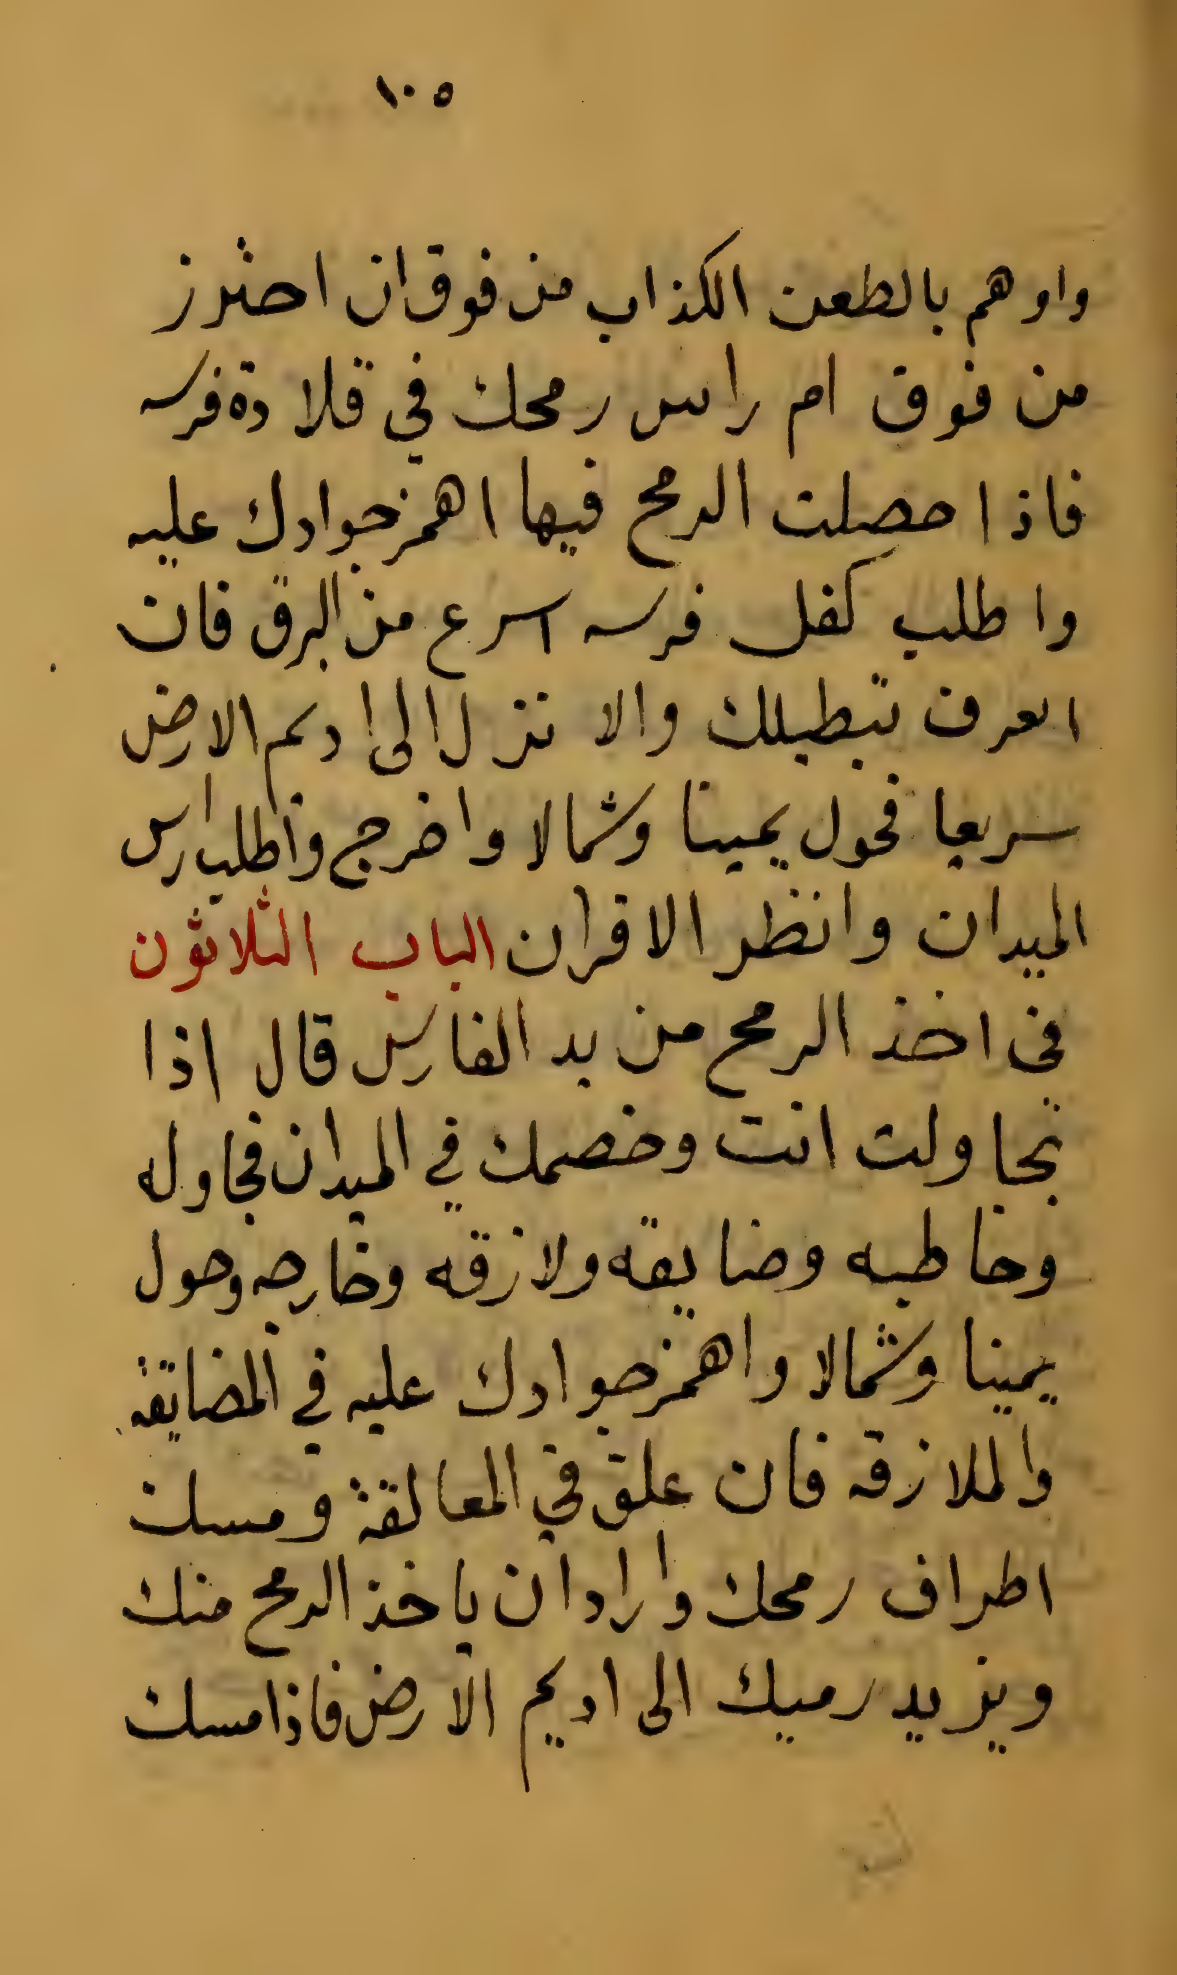 ١٠٥
واوهم بالطعن الكذاب من فوق ان احترز
من فوق ام راس رمحك في قلادة فرسه
فاذا حصلت الرمح فيها اهمز جوادك عليه
واطلب كفل فرسه اسرع من البرق فان
العرف تبطيلك والا نتزل الى اديم الارض
سريعا فحول يمينا وشمالا واخرج واطلب راس
الميدان وانظر الاقران الباب الثلاثون
فى اخذ الرمح من يد الفارس قال اذا
تجاولت انت وخصمك في الميدان فجاوله
وخاطبه وضايقه ولازقه وخارجه وحول
يمينا وشمالا واهمز جوادك عليه في المضايقة
والملازقه فان علق في المعالقة ومسك
اطراف رمحك واراد ان ياخذ الرمح منك
ويزيد رميك الى اديم الارض فاذا مسك